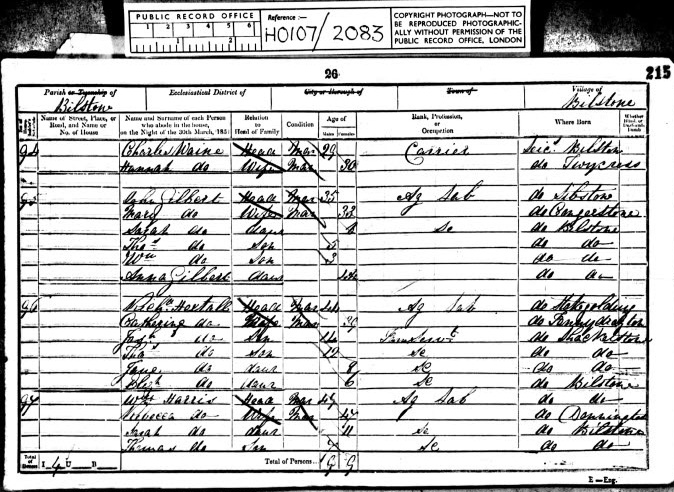 PUBLIC RECORD OFFICE
1 2 3 4 5 6
1 2
Reference:-
HO107/2083
COPYRIGHT PHOTOGRAPH—NOT TO
BE REPRODUCED PHOTOGRAPHIC-
ALLY WITHOUT PERMISSION OF THE
PUBLIC RECORD OFFICE, LONDON
26
215
Parish or Township of
Ecclesiastical District of
City or Borough of
Town of
Village of
Bilstone
Bilstone
Name of Street, Place, or Road, and Name or No. of House
Name and Surname of each Person who abode in the house, on the Night of the 30th March, 1851
Relation to Head of Family
Condition
Age of
Males Females
Rank, Profession, or Occupation
Where Born
Whether Blind, or Deaf-and-Dumb
94 Charles Waine Head Mar 29 Carrier Leics Bilston
Hannah do Wife Mar 30 do Twycross
95 Gilbert Head Mar 35 Ag Lab do Sibston
Mary do Wife Mar 33 do Congerstone
Sarah do daur Sc do Bilstone
Thos do Son 5 do do
Wm do Son 3 do do
Anna Gilbert daur do do
96 Hextall Head Mar 44 Ag Lab do
Catharine do Mar 39 do Fennydrayton
do Son 14 do Shackelstone
Thos do Son 12 Sc do do
Jane do daur 8 Sc do do
do daur 6 Sc do Bilstone
97 Wm Harris Head Mar 47 Ag Lab do do
Rebecca do Wife Mar 47 do Donnington
Sarah do daur 11 Sc do Bilstone
Thomas do Son 7 Sc do do
Total of Houses I 4 U B
Total of Persons 9 9
E—Eng.